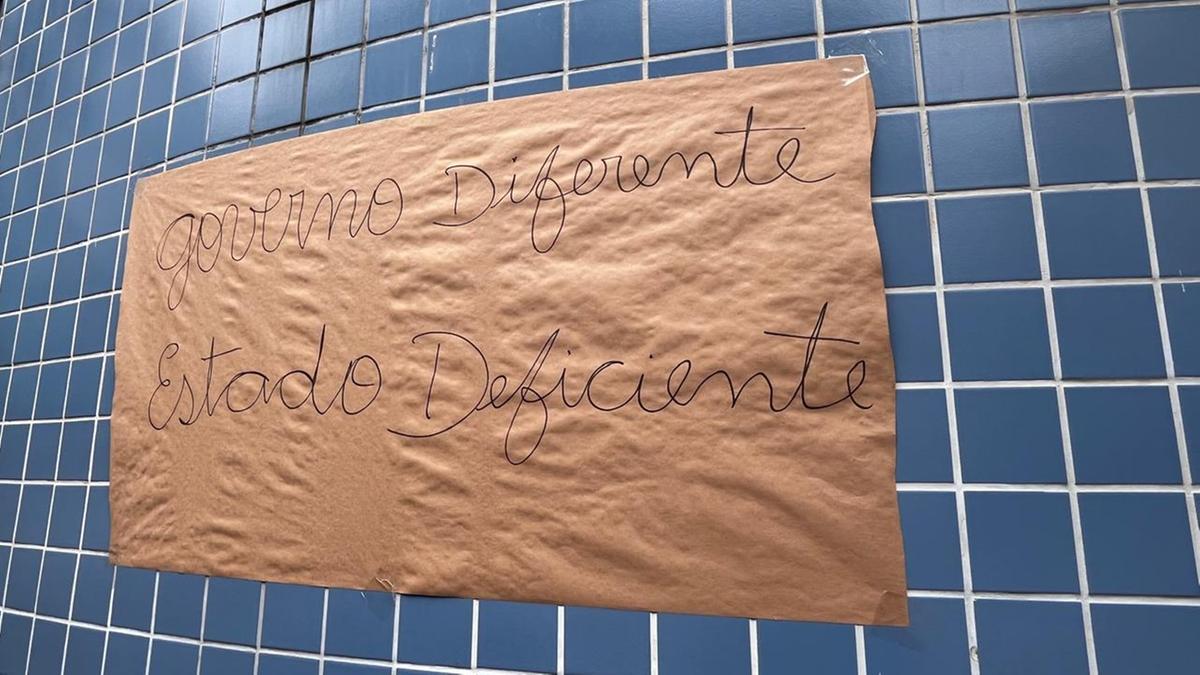 Governo Diferente
Estado Deficiente